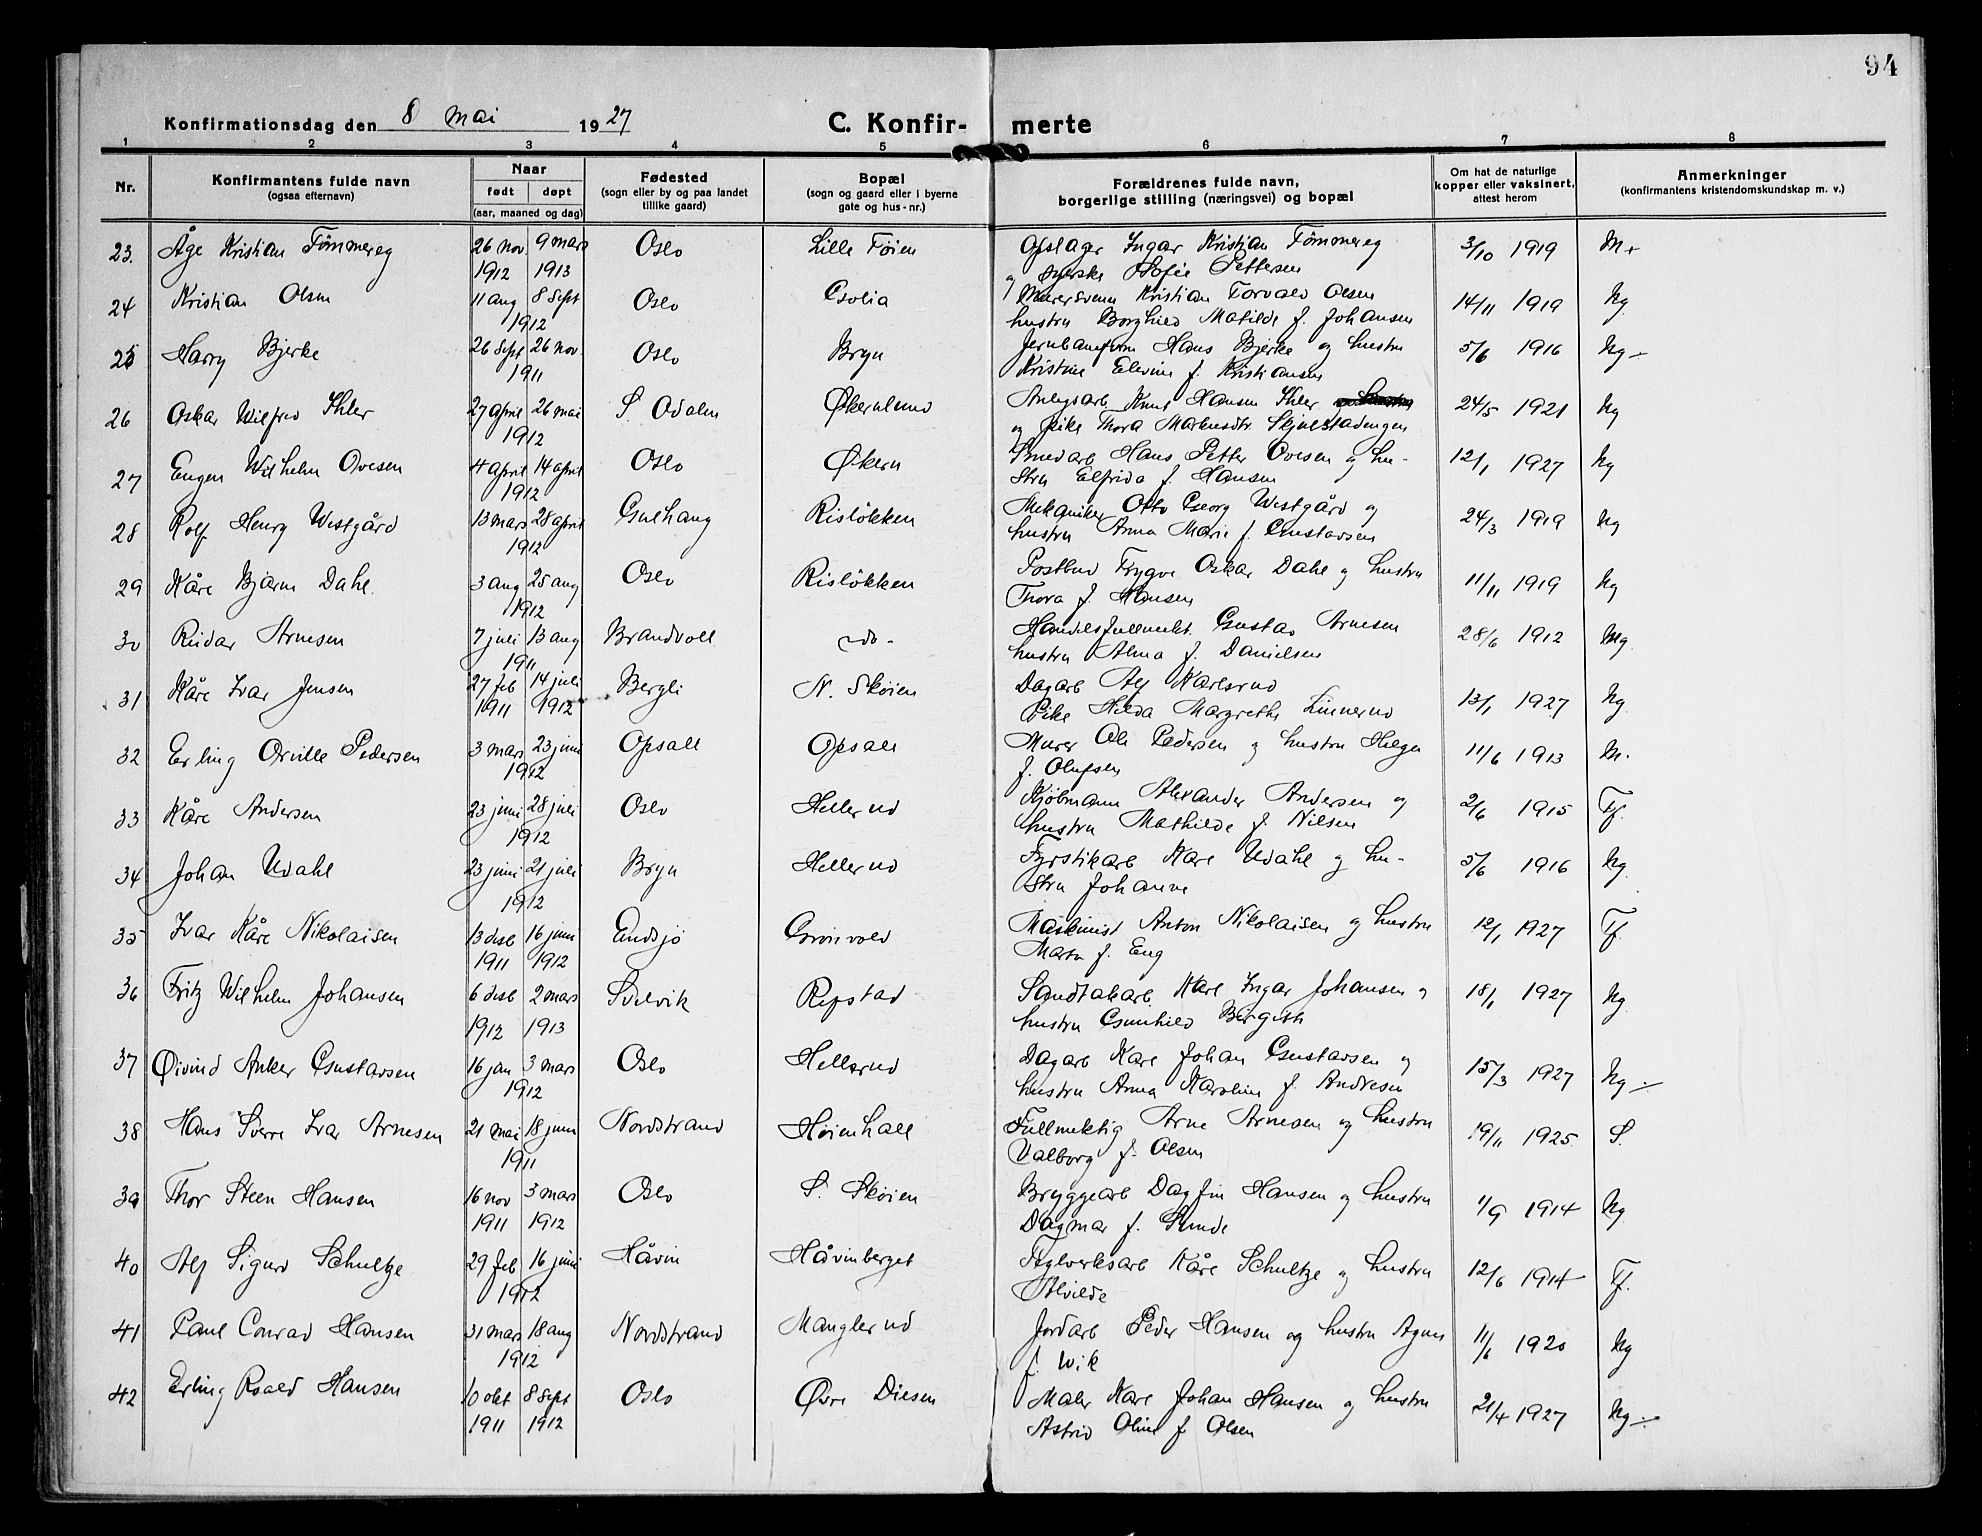 94
Konfirmationsdag den 8 mai 1927 C. Konfirmerte
1 2 3 4 5 6 7 8
Nr. Konfirmantens fulde navn (ogsaa efternavn) Naar født døpt (aar, maaned og dag) Fødested (sogn eller by og paa landet tillike gaard) Bopæl (sogn og gaard eller i byerne gate og hus-nr.) Forældrenes fulde navn, borgerlige stilling (næringsvei) og bopæl Om hat de naturlige kopper eller vaksinert, attest herom Anmerkninger (konfirmantens kristendomskundskap m. v.)
23. Åge Kristian Tömmereg 26 nov 9 mars Oslo Lille Töien Opslager Ingar Kristian Tömmereg 3/10 1919 M+
1912 1913 og syerske Sofie Pettersen
24 Kristian Olsen 11 aug 8 sept Oslo Godlia Murersvenn Kristian Torvald Olsen 14/11 1919 Ng
1912 hustru Borghild Matilde f. Johansen
25 Harry Bjerke 26 sept 26 nov. Oslo Bryn Hans Bjerke og hustru 5/6 1916 Ng-
1911 Kristine Elevine f. Kristiansen
26 Oskar Wilfred Ihler 27 april 26 mai S. Odalen Økernlund Anlegsarb Knut Hansen Ihler 24/5 1921 Ng
1912 og pike Thora Markusdtr. Skjulstadengen
27 Eugen Wilhelm Ovesen 4 april 14 april Oslo Økern Smedarb Hans Petter Ovesen og hu- 12/1 1927 Ng
1912 stru Elfrida f. Hansen
28 Rolf Henry Westgård 13 mars 28 april Gulhaug Rislökken Mekaniker Otto Georg Westgård og 24/3 1919 Ng
1912 hustru Anna Marie f. Gustavsen
29 Kåre Bjarne Dahl. 3 aug 25 aug Oslo Rislökken Postbud Trygve Oskar Dahl og hustru 11/11 1919 Ng
1912 Thora f. Hansen
30 Reidar Arnesen 7 juli 13 aug Brandvoll -do- Handelsfullmekt. Gustav Arnesen 28/6 1912 Mg
1911 hustru Alma f. Danielsen
31 Kåre Ivar Jensen 27 feb 14 juli Bergli N. Skøien Dagarb Alf Karlsrud 13/1 1927 Ng
1911 1912 Pike Hilda Margrethe Linnerud
32 Erling Orville Pedersen 3 mars 23 juni Opsall Opsall Murer Ole Pedersen og hustru Helga 11/6 1913 M.
1912 f. Olufsen
33 Kåre Andersen 23 juni 28 juli Oslo Hellerud Kjöbmann Alexander Andersen og 2/6 1915 Tf.
1912 hustru Mathilde f. Nilsen
34 Johan Udahl 23 juni 21 juli Bryn Hellerud Fyrstikarb Karl Udahl og hu- 5/6 1916 Ng.
1912 stru Johanne
35 Ivar Kåre Nikolaisen 13 desb 16 juni Endsjö Grönvold Maskinist Anton Nikolaisen og hustru 12/1 1927 Tf.
1911 1912 Marta f. Eng
36 Fritz Wilhelm Johansen 6 desb 2 mars Svelvik Repstad Sandtakarb. Karl Ingar Johansen og 18/1 1927 Ng
1912 1913 hustru Gunhild Bergith
37 Øivind Anker Gustavsen 16 jan 3 mars Oslo Hellerud Dagarb Karl Johan Gustavsen og 15/3 1927 Ng-
1912 hustru Anna Karoline f. Andresen
38 Hans Sverre Ivar Arnesen 21 mai 18 juni Nordstrand Höienhall Fullmektig Arne Arnesen og hustru 19/11 1925 S.
1911 Valborg f. Olsen
39 Thor Steen Hansen 16 nov 3 mars Oslo S. Skøien Bryggearb Dagfin Hansen og hustru 1/9 1914 Ng
1911 1912 Dagmar f. Sunde
40 Alf Sigurd Schultze 29 feb 16 juni Håvin Håvinberget Teglverksarb Kåre Schultze og hustru 12/6 1914 Tf.
1912 Alvilde
41 Paul Conrad Hansen 31 mars 18 aug Nordstrand Manglerud Jordarb Peder Hansen og hustru Agnes 11/6 1920 Ng
1912 f. Wik
42 Erling Roald Hansen 10 okt 8 sept Oslo Øvre Diesen Maler Karl Johan Hansen og hustru 21/4 1927 Ng-
1911 1912 Astrid Oline f. Olsen